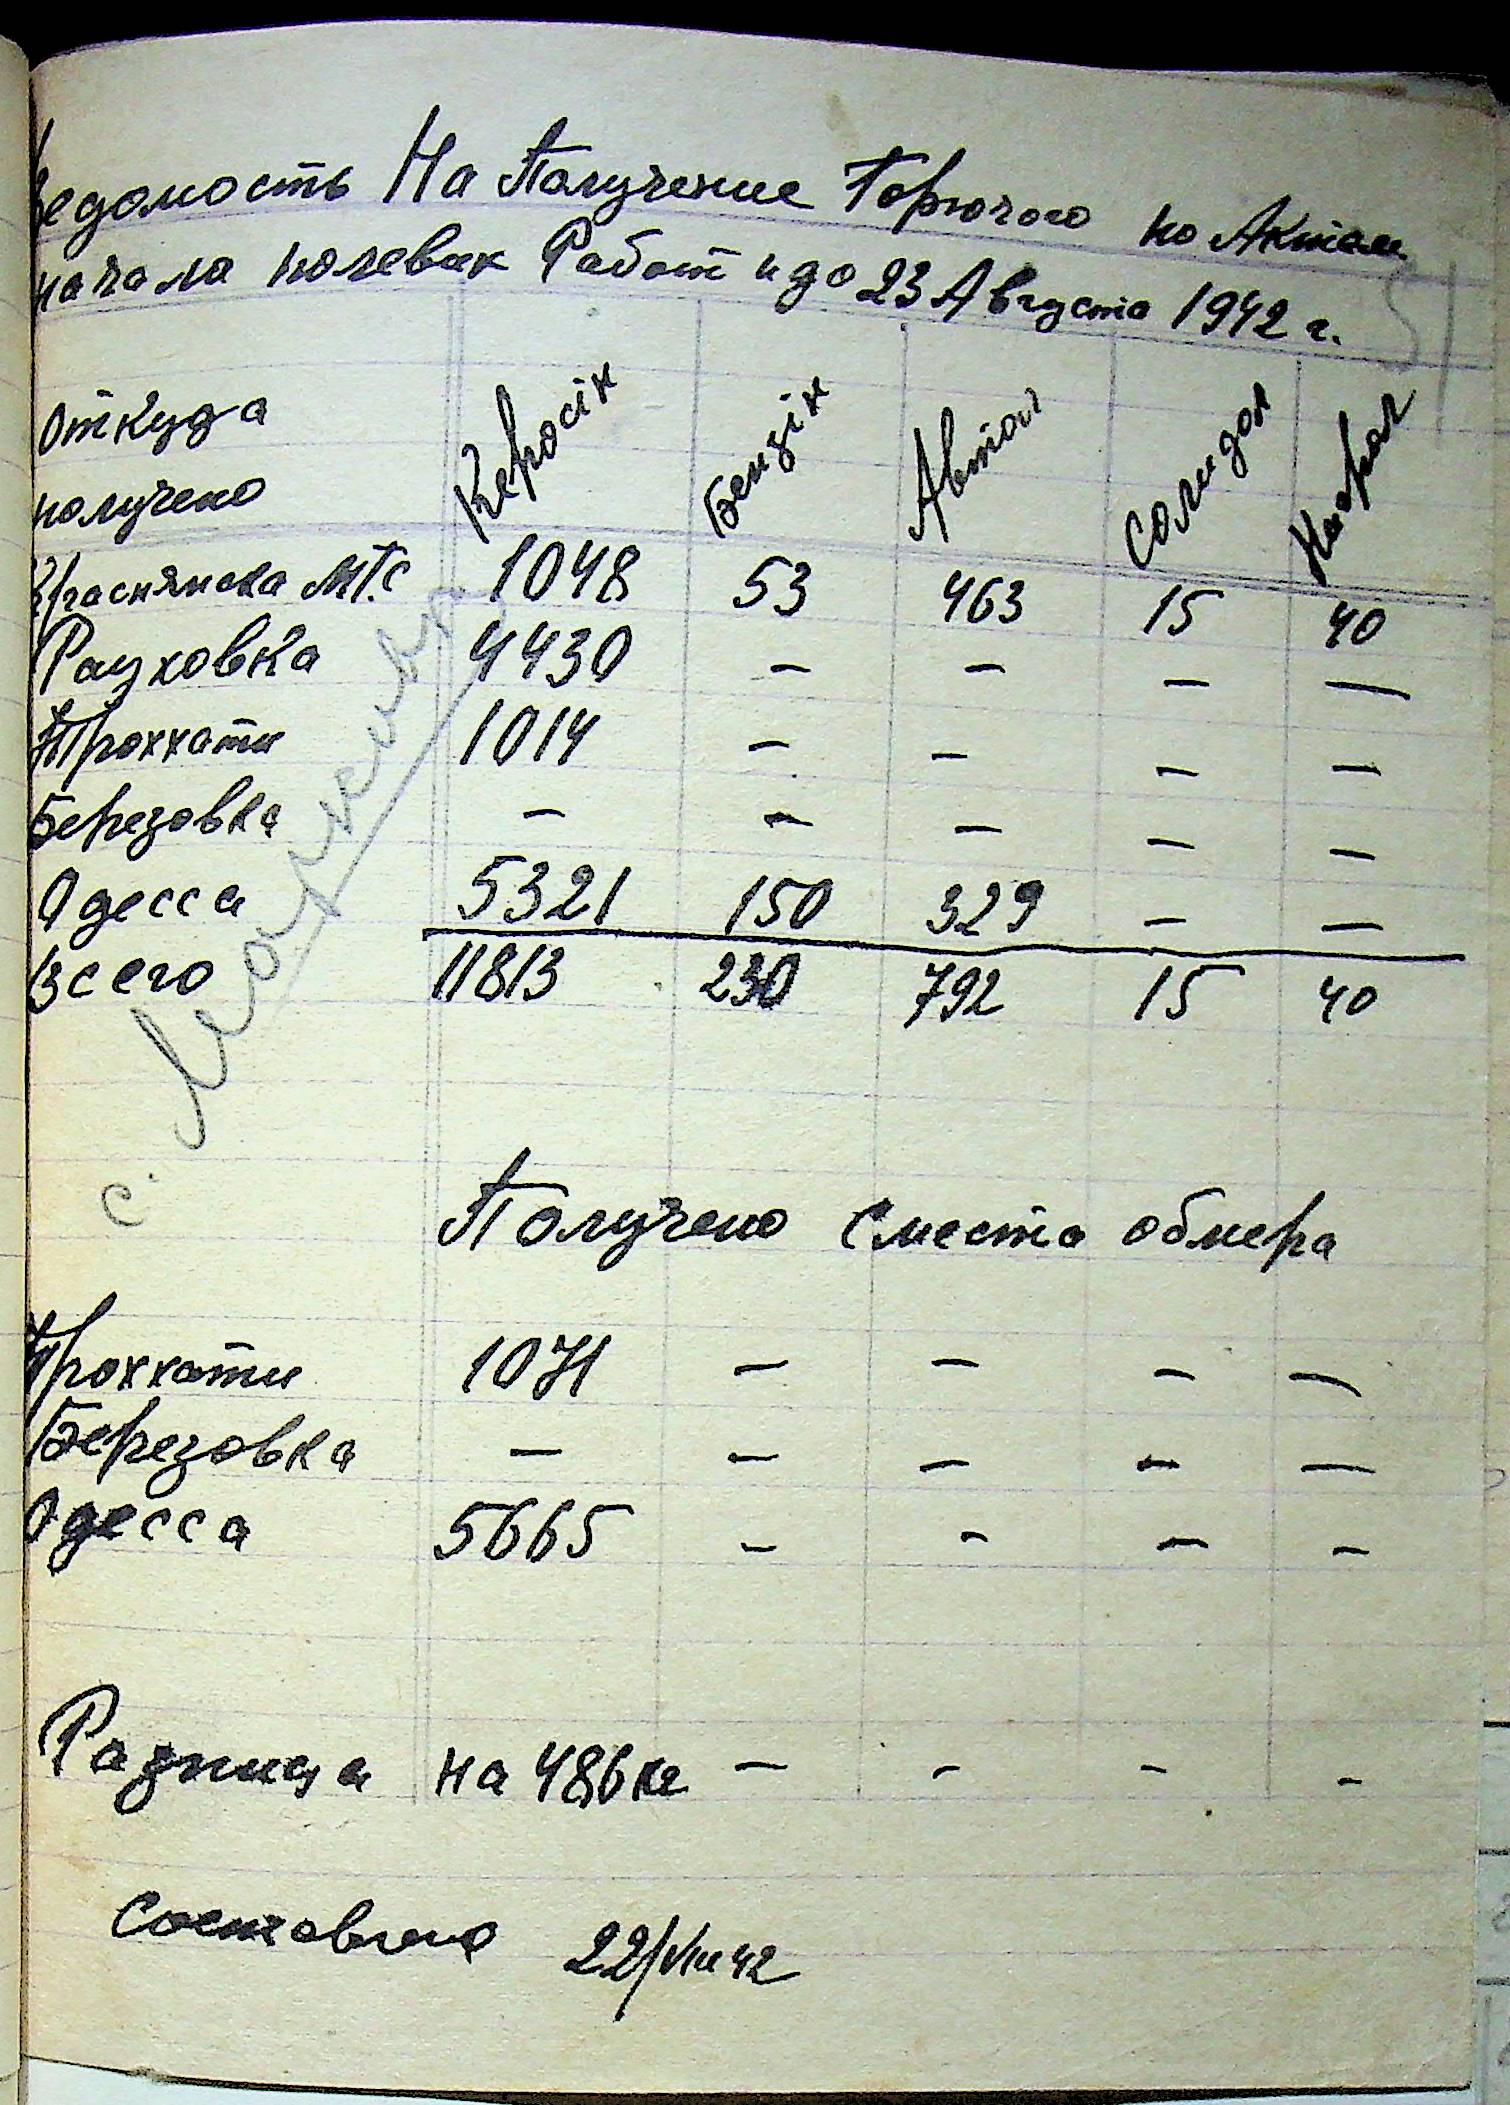 Ведомость На Получение Горючого по Актам
начала полевых Работ и до 23 Августа 1942 г.
51
откуда
получено
Керосін Бензін Автол Солидол Нигрол
Краснянска МТС 1048 53 463 15 40
Рауховка 4430 – – – –
Проххати 1014 – – – –
Березовка – – – – –
Одесса 5321 150 329 – –
Всего 11813 230 792 15 40
с.
Получено с места обмера
Проххати 1071 – – – –
Березовка – – – – –
Одесса 5665 – – – –
Разница на 486 кг – – – –
Составлено 22/VIII 42